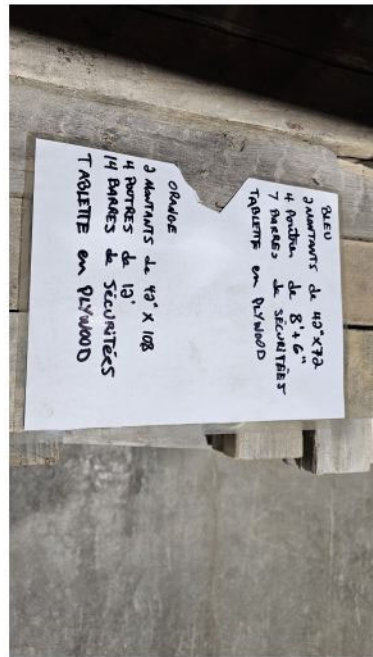 BLEU
2 MONTANTS de 42" x 72
4 Poutres de 8'+6"
7 BARRES de SÉCURITÉES
TABLETTE en PLYWOOD
ORANGE
2 MONTANTS de 42" x 108
4 POUTRES de 12'
14 BARRES de SÉCURITÉES
TABLETTE en PLYWOOD